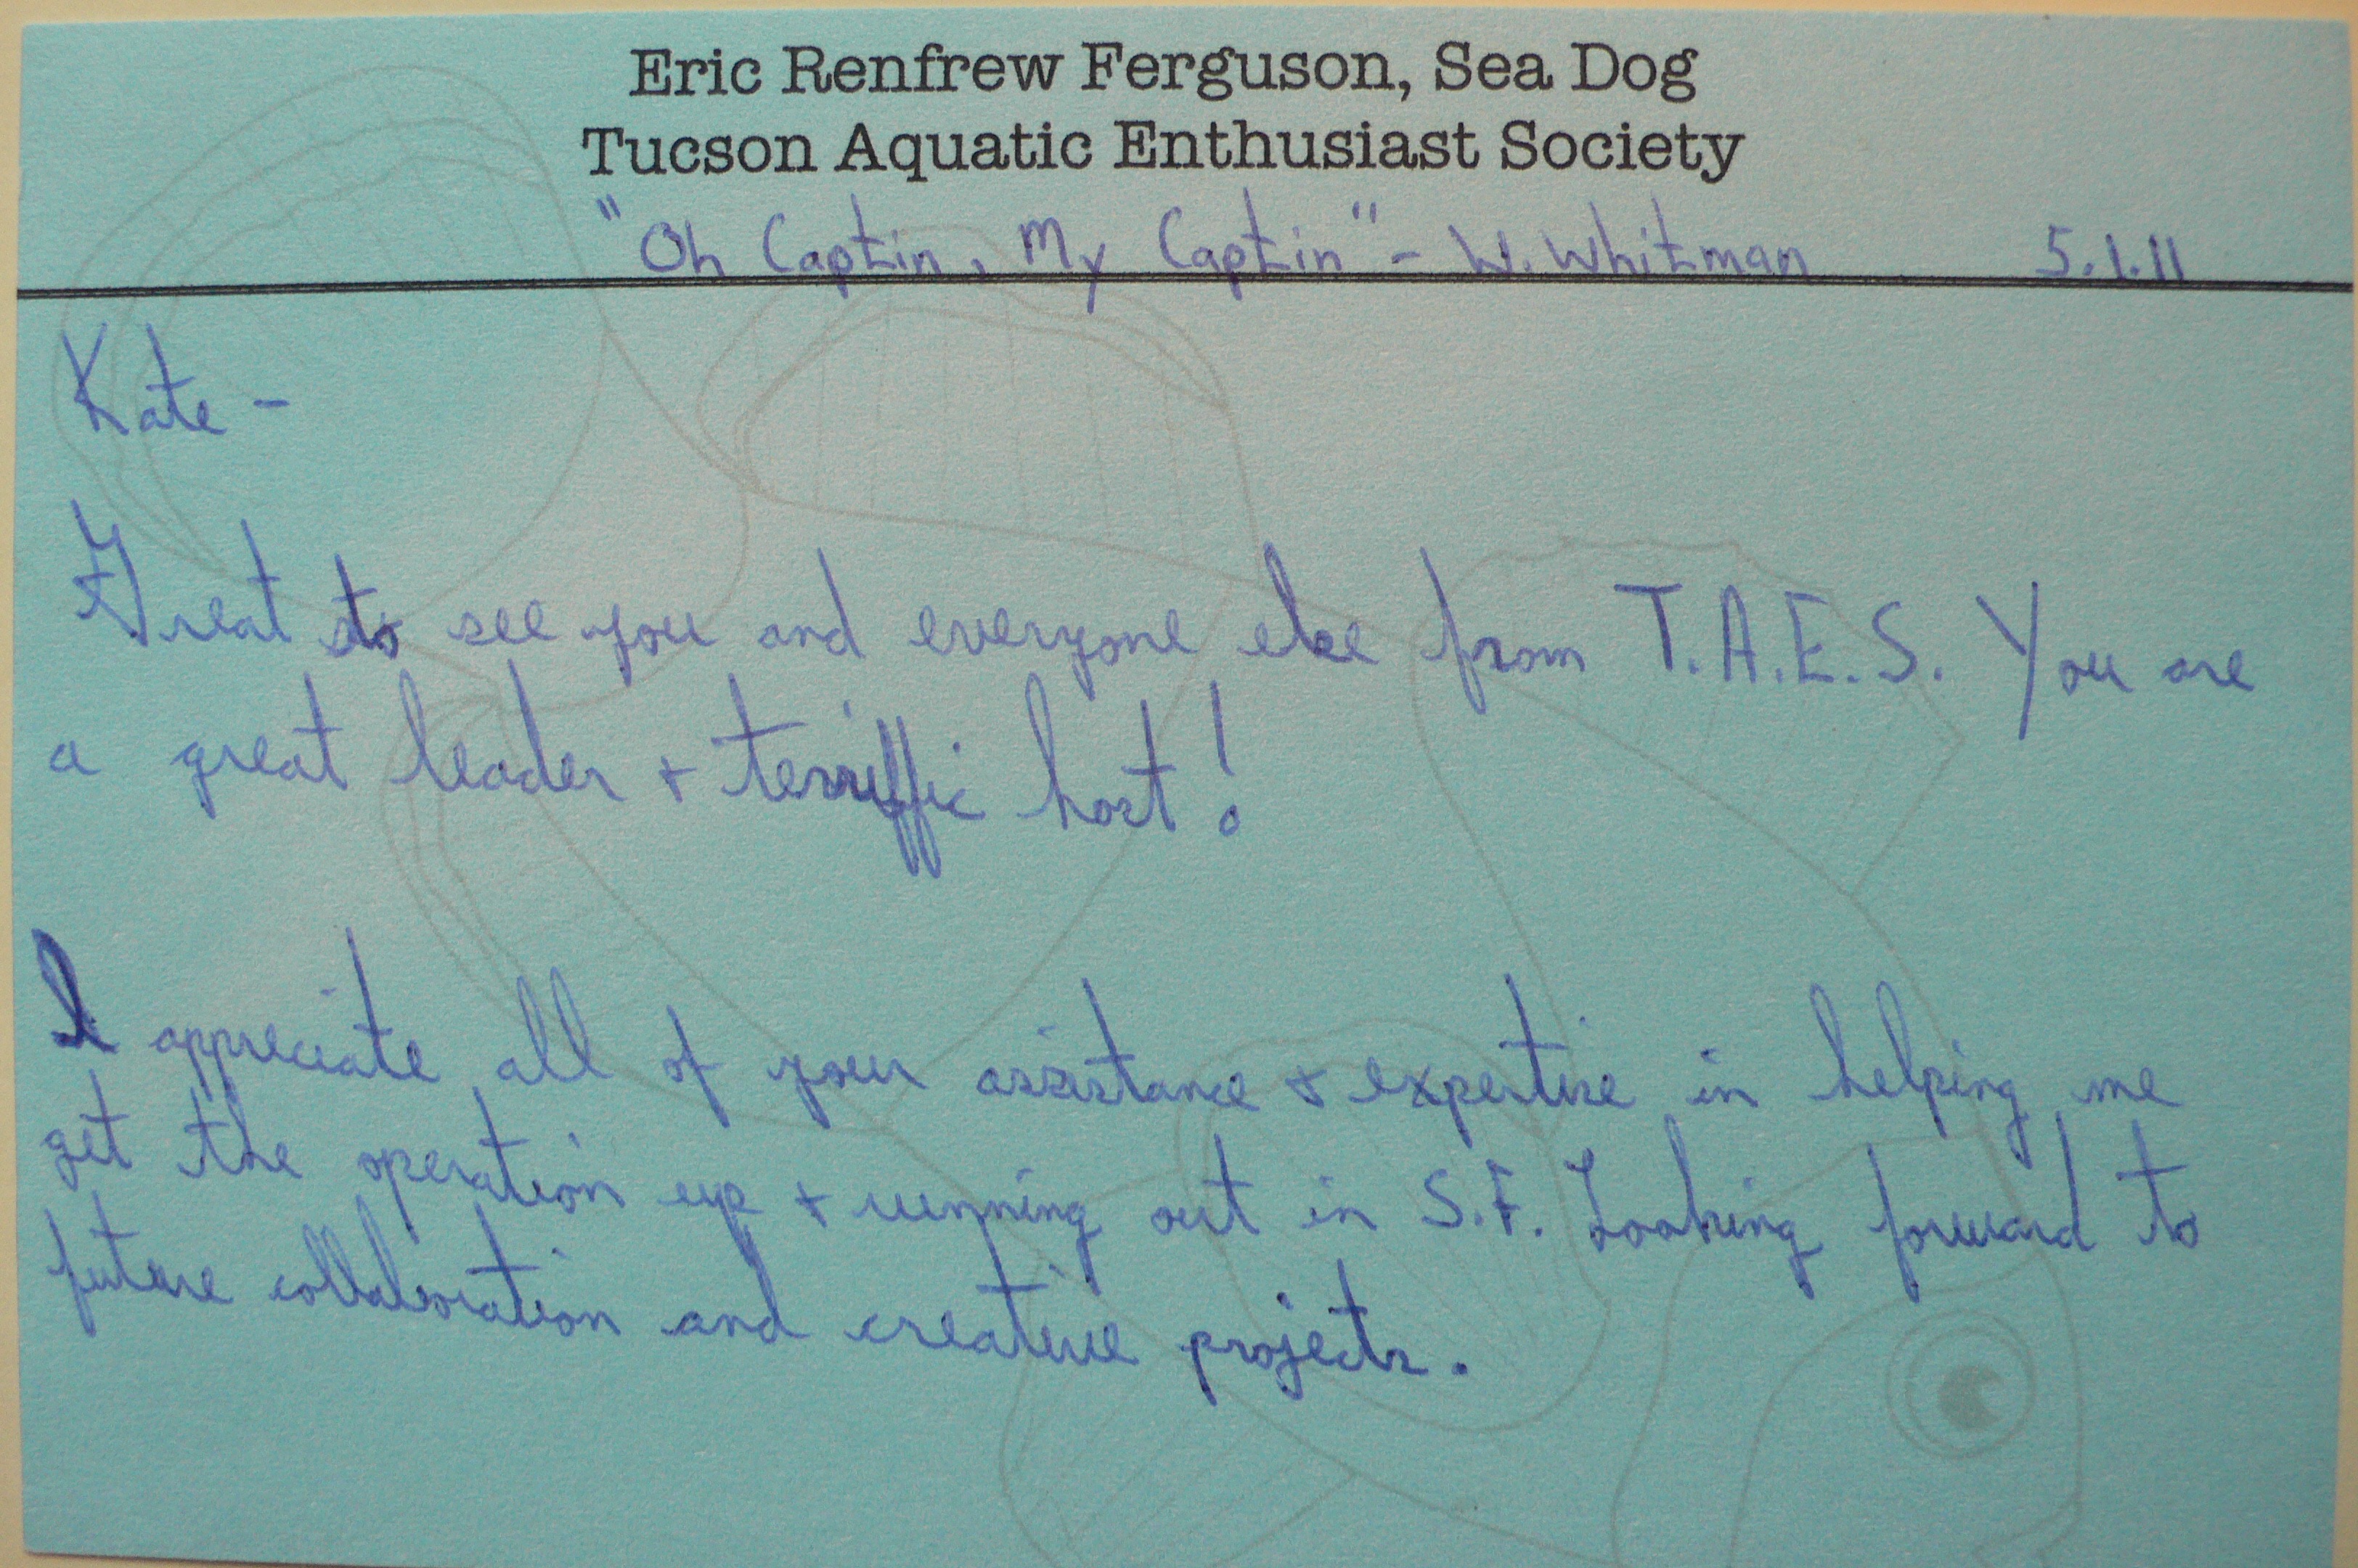 Eric Renfrew Ferguson, Sea Dog
Tucson Aquatic Enthusiast Society
"Oh Captin, My Captin" - W. Whitman 5.1.11
Kate -
Great to see you and everyone else from T.A.E.S. You are
a great leader + terriffic host!
I appreciate all of your assistance + expertise in helping me
get the operation up + running out in S.F. Looking forward to
future collaboration and creative projects.